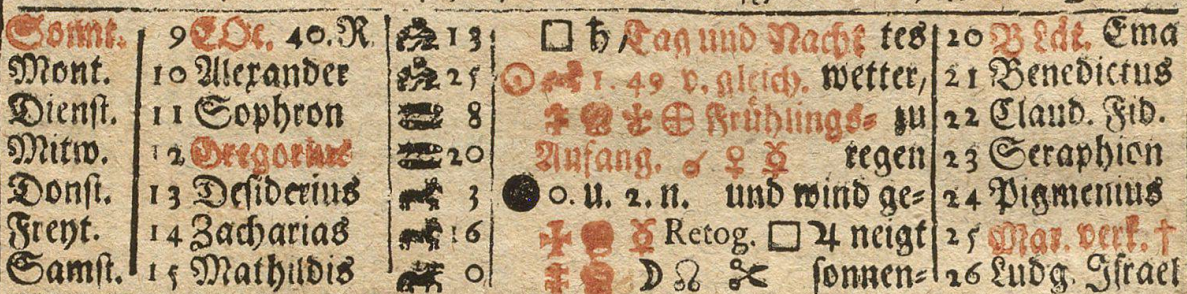 Sonnt. 9 40. R. 13 □ ♄ Tag und Nacht tes 20 Ema
Mont. 10 Alexander 25 ☉ 1. 49 v. gleich. wetter, 21 Benedictus
Dienst. 11 Sophron 8 Frühlings- zu 22 Claud. Fid.
Mitw. 12 Gregorius 20 Anfang. ☌ ♀ ☿ regen 23 Seraphion
Donst. 13 Desiderius 3 ● 0. u. 2. n. und wind ge- 24 Pigmenius
Freyt. 14 Zacharias 16 ☿ Retog. □ ♃ neigt 25 Mar. verk. †
Samst. 15 Mathildis 0 ☽ ☊ sonnen- 26 Ludg. Israel